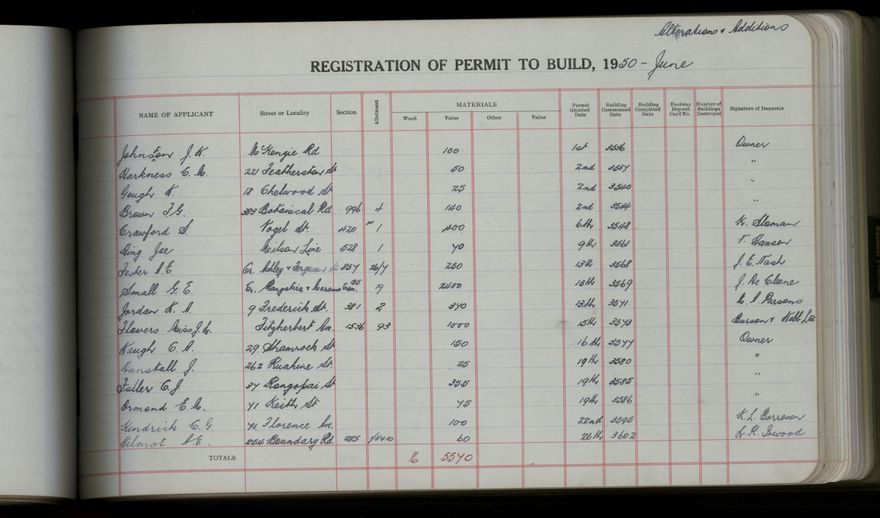 Alterations & Additions
REGISTRATION OF PERMIT TO BUILD, 1950 - June
NAME OF APPLICANT Street or Locality Section Allotment MATERIALS Permit Granted Date Building Commenced Date Building Completed Date Footway Deposit Card No. Number of Buildings Destroyed Signature of Inspector
Wood Value Other Value
Johnston J. K. McKenzie Rd 100 1st 3536 Owner
Harkness C. M. 221 Featherston St 50 2nd 3537 "
Gough K. 18 Chelwood St 25 2nd 3540 "
Brown F. G. 383 Botanical Rd 996 4 140 2nd 3544 "
Crawford S Vogel St 420 1 400 6th 3548 K. Sloman
Hing Joe Milson Line 528 1 70 9th 3561 F. Hansen
Foster A. E. Cr. Ashley & Ferguson St 257 26/7 250 13th 3568 J. E. Nash
Small G. E. Cr. Rangitira & 9 2400 13th 3569
Jordan K. A. 9 Frederick St. 381 2 370 13th 3571 C. S. Parsons
Flowers Miss J. Fitzherbert Av. 1536 93 1000 15th 3573
Waugh C. A. 29 Shamrock St 150 16th 3577 Owner
Dunstall J. 262 Ruahine St 25 19th 3580 "
Fuller C. J. 37 Rangapai St 355 19th 3585 "
Ormond E. M. 71 Keith St 75 19th 3586 "
Kendrick C. G. Florence Av. 100 22nd 3595 K. L.
Wilmot Boundary Rd 60 26th 3602 L. R. Inwood
TOTALS 16 5570